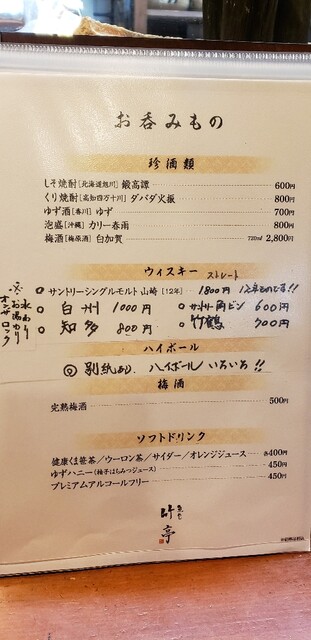 お呑みもの
珍酒類
しそ焼酎[北海道旭川] 鍛高譚 600円
くり焼酎[高知四万十川] ダバダ火振 800円
ゆず酒[香川] ゆず 700円
泡盛[沖縄] カリー春雨 800円
梅酒[梅原酒] 白加賀 720ml 2,800円
ウィスキー ストレート
サントリーシングルモルト 山崎 [12年] 1800円 12年ものです!!
白州 1000円
サントリー角ビン 600円
知多 800円
竹鶴 900円
※ 水わり
お湯わり
オンザロック
ハイボール
◎ 別紙あり、ハイボール いろいろ!!
梅酒
完熟梅酒 500円
ソフトドリンク
健康くま笹茶/ウーロン茶/サイダー/オレンジジュース 各400円
ゆずハニー(柚子はちみつジュース) 450円
プレミアムアルコールフリー 450円
竹亭